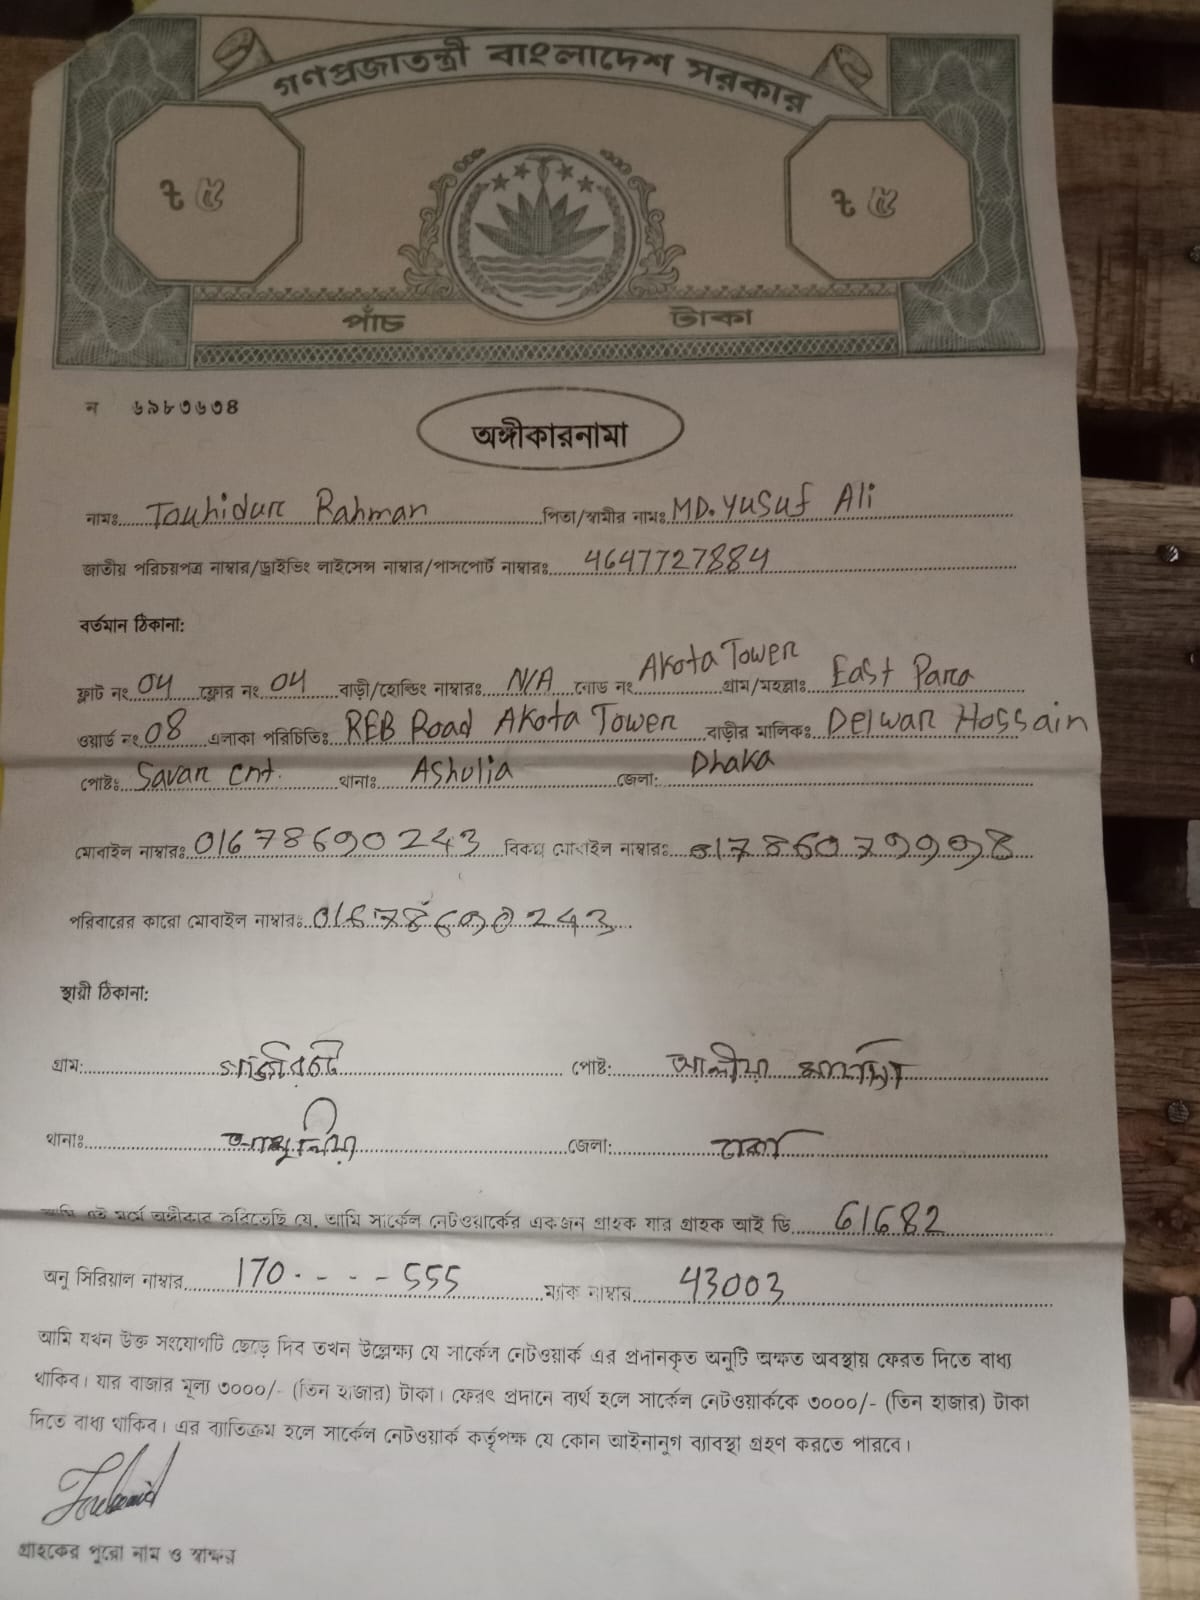 গণপ্রজাতন্ত্রী বাংলাদেশ সরকার
৳ ৫ ৳ ৫
পাঁচ টাকা
ন ৬৯৮৩৬৩৪
অঙ্গীকারনামা
নামঃ Touhidur Rahman পিতা/স্বামীর নামঃ MD. Yusuf Ali
জাতীয় পরিচয়পত্র নাম্বার/ড্রাইভিং লাইসেন্স নাম্বার/পাসপোর্ট নাম্বারঃ 4647727884
বর্তমান ঠিকানা:
ফ্লাট নং 04 ফ্লোর নং 04 বাড়ী/হোল্ডিং নাম্বারঃ N/A রোড নং Akota Tower গ্রাম/মহল্লাঃ East Para
ওয়ার্ড নং 08 এলাকা পরিচিতিঃ REB Road Akota Tower বাড়ীর মালিকঃ Delwar Hossain
পোষ্টঃ Savar cnt. থানাঃ Ashulia জেলা: Dhaka
মোবাইল নাম্বারঃ 01678690243 বিকল্প মোবাইল নাম্বারঃ 01786079998
পরিবারের কারো মোবাইল নাম্বারঃ 01678690243
স্থায়ী ঠিকানা:
গ্রাম: গাজীরচট পোষ্ট: আলীয়া মাদ্রাসা
থানাঃ আশুলিয়া জেলা: ঢাকা
আমি এই মর্মে অঙ্গীকার করিতেছি যে, আমি সার্কেল নেটওয়ার্কের একজন গ্রাহক যার গ্রাহক আই ডি 61682
অনু সিরিয়াল নাম্বার 170 - - - - 555 ম্যাক নাম্বার 43003
আমি যখন উক্ত সংযোগটি ছেড়ে দিব তখন উল্লেক্ষ্য যে সার্কেল নেটওয়ার্ক এর প্রদানকৃত অনুটি অক্ষত অবস্থায় ফেরত দিতে বাধ্য
থাকিব। যার বাজার মূল্য ৩০০০/- (তিন হাজার) টাকা। ফেরৎ প্রদানে ব্যর্থ হলে সার্কেল নেটওয়ার্ককে ৩০০০/- (তিন হাজার) টাকা
দিতে বাধ্য থাকিব। এর ব্যাতিক্রম হলে সার্কেল নেটওয়ার্ক কর্তৃপক্ষ যে কোন আইনানুগ ব্যাবস্থা গ্রহণ করতে পারবে।
গ্রাহকের পুরো নাম ও স্বাক্ষর